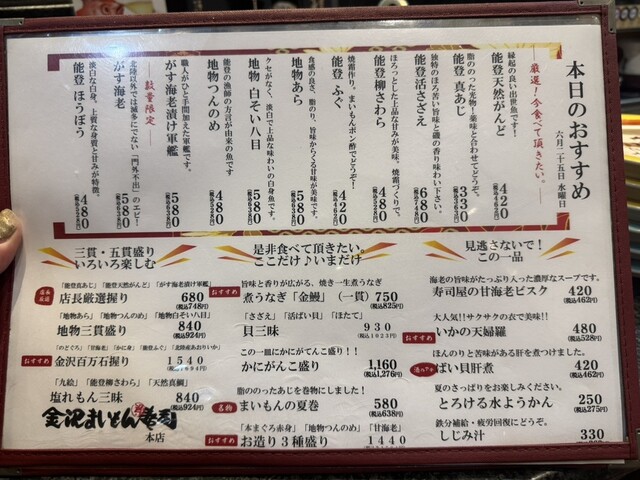 本日のおすすめ
六月二十五日 水曜日
厳選!今食べて頂きたい。
縁起の良い出世魚です!
能登 天然がんど
420
(税込462円)
脂ののった光物!薬味と合わせてどうぞ。
能登 真あじ
333
独特のほろ苦い旨味と磯の香り味わい下さい。
能登活さざえ
680
(税込748円)
ほろっとした上品な甘みが美味、焼霜づくりで。
能登柳さわら
480
(税込528円)
焼霜作り。まいもんポン酢でどうぞ!
能登 ふぐ
420
(税込462円)
食感の良さ、脂のり、旨味からくる甘味が美味です。
地物あら
580
(税込638円)
クセがなく、淡白で上品な味わいの白身魚です。
地物 白そい八目
580
(税込638円)
能登の漁師の方言が由来の魚です
地物つんのめ
480
(税込528円)
職人がひと手間加えた軍艦です。
がす海老漬け軍艦
580
(税込638円)
数量限定
北陸以外では滅多にでない「門外不出」のエビ!
がす海老
580
(税込638円)
淡白な白身。上質な身質と甘みが特徴。
能登 ほうぼう
480
(税込528円)
三貫・五貫盛り
いろいろ楽しむ
「能登真あじ」「能登天然がんど」「がす海老漬け軍艦」
店長厳選握り 680
(税込748円)
「地物あら」「地物つんのめ」「地物白そい八目」
地物三貫盛り 840
(税込924円)
「のどぐろ」「甘海老」「かに身」「能登ふぐ」「北陸産あおりいか」
おすすめ 金沢百万石握り 1540
(税込1694円)
「九絵」「能登柳さわら」「天然真鯛」
塩れもん三昧 840
(税込924円)
金沢まいもん寿司
本店
是非食べて頂きたい。
ここだけ♪いまだけ
旨味と香りが広がる、焼き一生煮うなぎ
おすすめ 煮うなぎ「金鰻」(一貫) 750
(税込825円)
「さざえ」「活ばい貝」「ほたて」
貝三昧 930
(税込1023円)
この一皿にかにがてんこ盛り!!
かにがんこ盛り 1,160
(税込1,276円)
脂ののったあじを巻物にしました!
名物 まいもんの夏巻 580
(税込638円)
「本まぐろ赤身」「地物つんのめ」「甘海老」
おすすめ お造り3種盛り 1440
見逃さないで!
この一品
海老の旨味がたっぷり入った濃厚なスープです。
寿司屋の甘海老ビスク 420
(税込462円)
大人気!!サクサクの衣で美味!!
おすすめ いかの天婦羅 480
(税込528円)
ほんのりと苦味がある肝を煮つけました。
ばい貝肝煮 420
(税込462円)
夏のさっぱりをお楽しみください。
とろける水ようかん 250
(税込275円)
鉄分補給・疲労回復にどうぞ。
しじみ汁 330